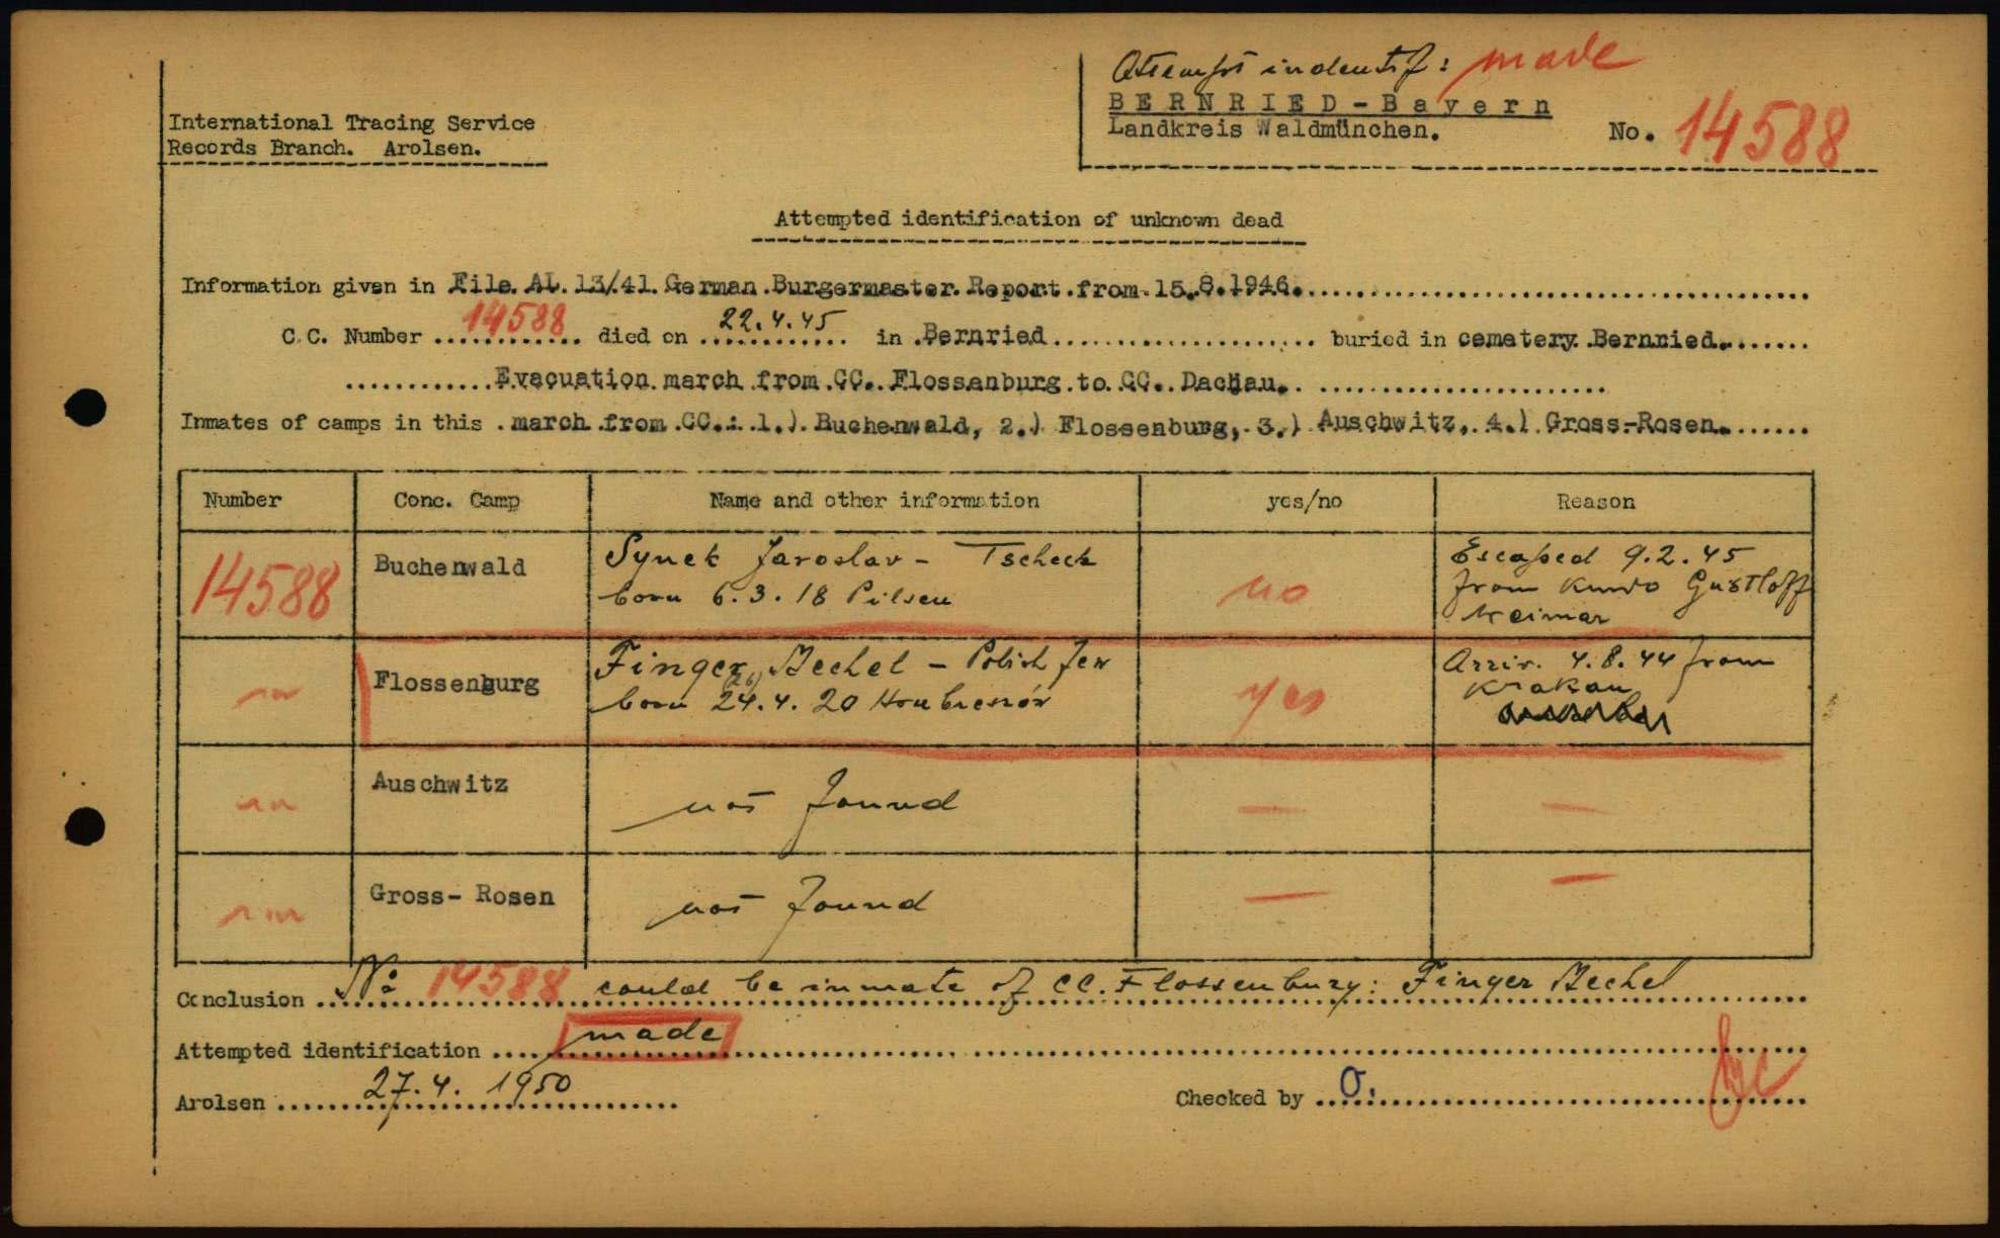 Attempt indentif: made
BERNRIED-Bayern
Landkreis Waldmünchen.
No. 14588
International Tracing Service
Records Branch. Arolsen.
Attempted identification of unknown dead
Information given in File AL. 13/41. German Burgermaster Report from 15.8.1946.
C.C. Number 14588 died on 22.4.45 in Bernried buried in cemetery Bernried.
Evacuation march from CC. Flossenburg to CC. Dachau.
Inmates of camps in this march from CC.: 1.) Buchenwald, 2.) Flossenburg, 3.) Auschwitz, 4.) Gross-Rosen.
Number Conc. Camp Name and other information yes/no Reason
14588 Buchenwald Synek Jaroslav - Tscheck no Escaped 9.2.45
born 6.3.18 Pilsen from Gustloff
Weimar
Flossenburg Finger, Mechel - Polish Jew yes Arriv. 4.8.44 from
born 24.4.20 Krakau
Auschwitz not found — —
Gross-Rosen not found — —
Conclusion No 14588 could be inmate of CC. Flossenburg: Finger Mechel
Attempted identification made
Arolsen 27.4. 1950 Checked by O.